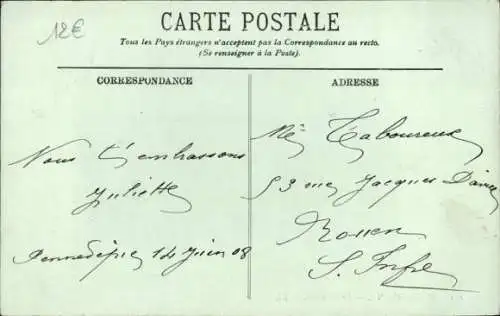 12€
CARTE POSTALE
Tous les Pays étrangers n'acceptent pas la Correspondance au recto.
(Se renseigner à la Poste).
CORRESPONDANCE
ADRESSE
Nous t'embrassons
Juliette
Pennedépie 14 Juin 08
Taboureux
53 rue Jacques
Rouen
S. Infre